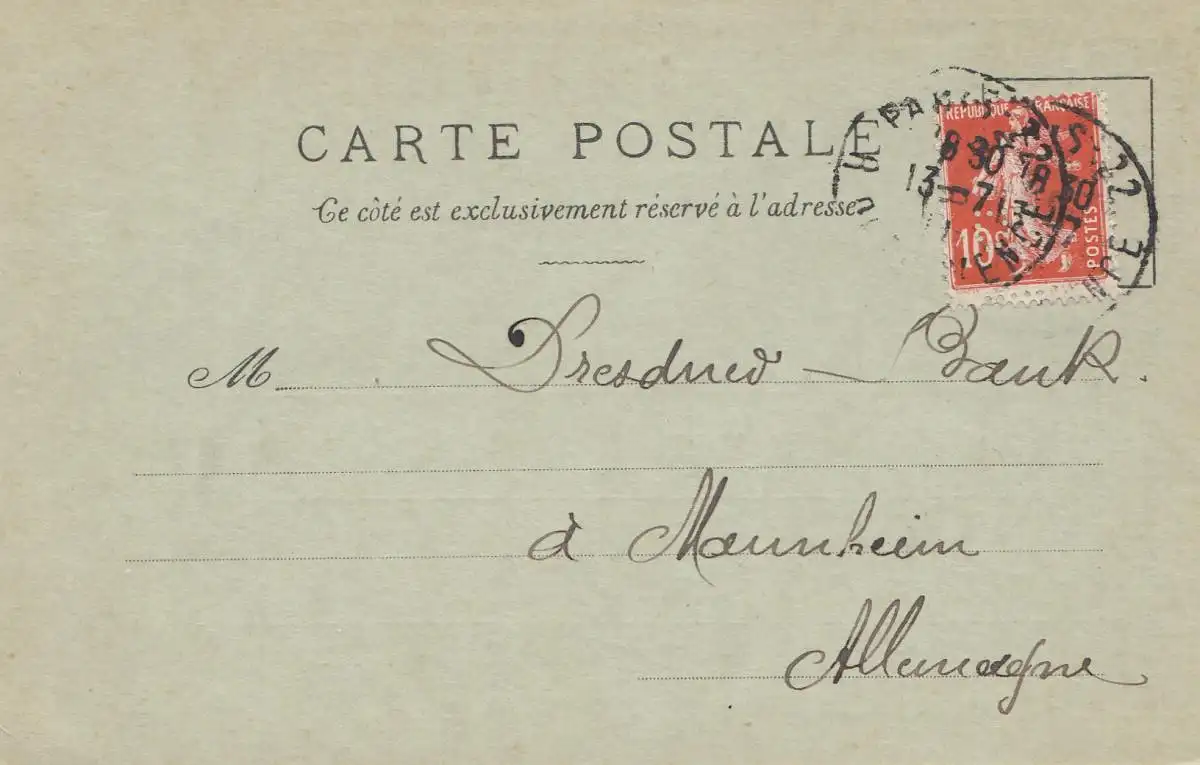 CARTE POSTALE
Ce côté est exclusivement réservé à l'adresse
REPUBLIQUE FRANÇAISE
10c
POSTES
PARIS
8 30
13
M Dresdner Bank.
à Mannheim
Allemagne